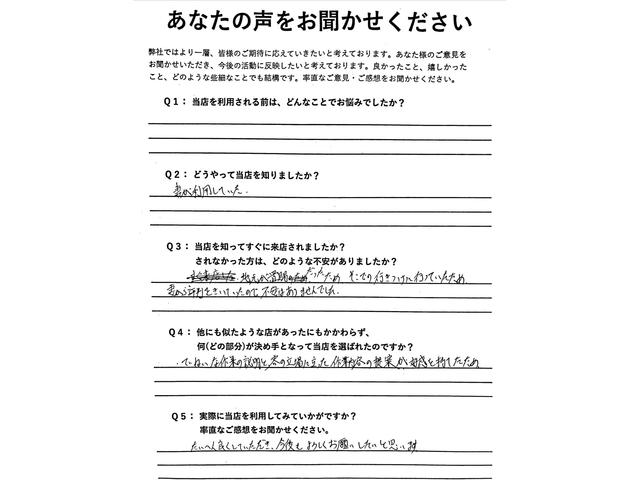 あなたの声をお聞かせください
弊社ではより一層、皆様のご期待に応えていきたいと考えております。あなた様のご意見を
お聞かせいただき、今後の活動に反映したいと考えております。良かったこと、嬉しかった
こと、どのような些細なことでも結構です。率直なご意見・ご感想をお聞かせください。
Q1： 当店を利用される前は、どんなことでお悩みでしたか？
Q2： どうやって当店を知りましたか？
妻が利用していた.
Q3： 当店を知ってすぐに来店されましたか？
されなかった方は、どのような不安がありましたか？
地元が だったため そこでの行きつけに行っていたため.
妻から評判をきいていたので、不安はありませんでした.
Q4： 他にも似たような店があったにもかかわらず、
何(どの部分)が決め手となって当店を選ばれたのですか？
・ていねいな作業の説明と客の立場に立った作業内容の提案が好感を持てたため
Q5： 実際に当店を利用してみていかがですか？
率直なご感想をお聞かせください。
たいへん良くしていただき、今後もよろしくお願いしたいと思います